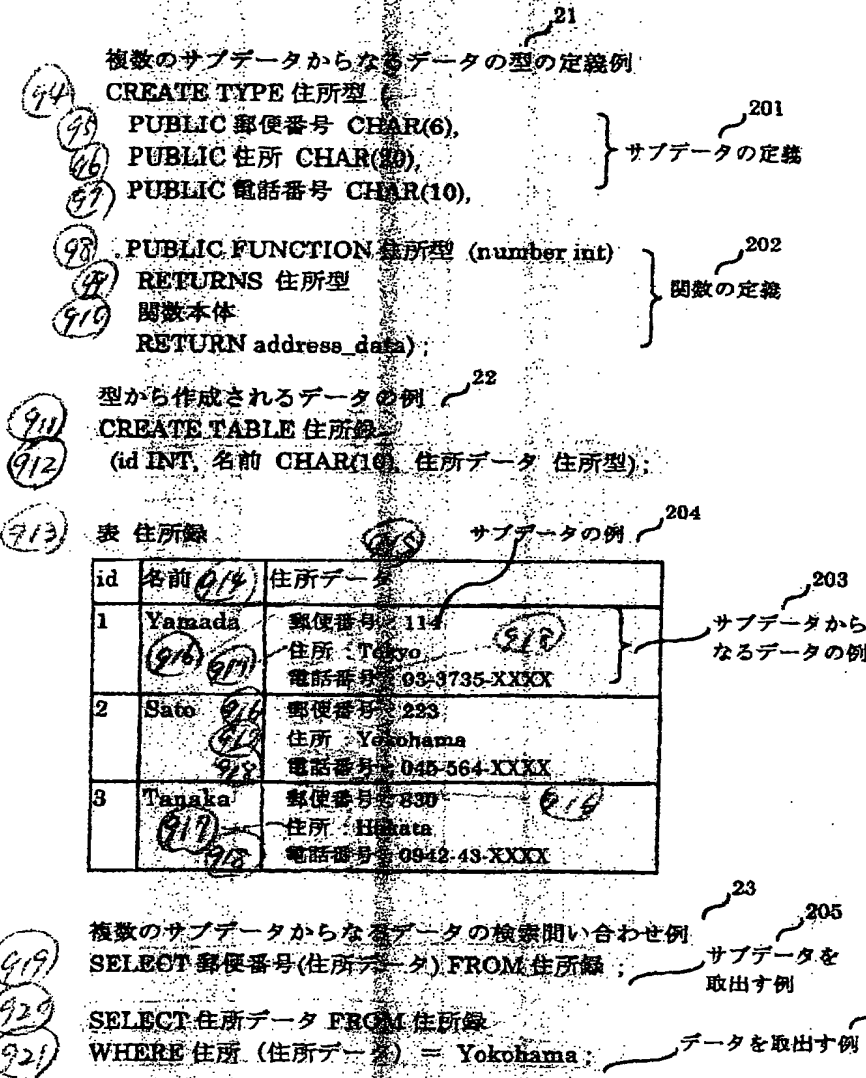 21
複数のサブデータからなるデータの型の定義例
94 CREATE TYPE 住所型 (
95 PUBLIC 郵便番号 CHAR(6),
96 PUBLIC 住所 CHAR(20),
97 PUBLIC 電話番号 CHAR(10),
201
サブデータの定義
98 PUBLIC FUNCTION 住所型 (number int)
99 RETURNS 住所型
910 関数本体
RETURN address_data) ;
202
関数の定義
型から作成されるデータの例 22
911 CREATE TABLE 住所録
912 (id INT, 名前 CHAR(10), 住所データ 住所型) ;
913 表 住所録
915 サブデータの例 204
id 名前 914 住所データ
1 Yamada 郵便番号 : 114
916 917 住所 : Tokyo 918
電話番号 : 03-3735-XXXX
203
サブデータから
なるデータの例
2 Sato 916 郵便番号 : 223
住所 : Yokohama
918 電話番号 : 045-564-XXXX
3 Tanaka 郵便番号 : 830 916
917 住所 : Hakata
918 電話番号 : 0942-43-XXXX
23
複数のサブデータからなるデータの検索問い合わせ例
919 SELECT 郵便番号(住所データ) FROM 住所録 ;
205
サブデータを
取出す例
920 SELECT 住所データ FROM 住所録
921 WHERE 住所 (住所データ) = Yokohama ;
データを取出す例